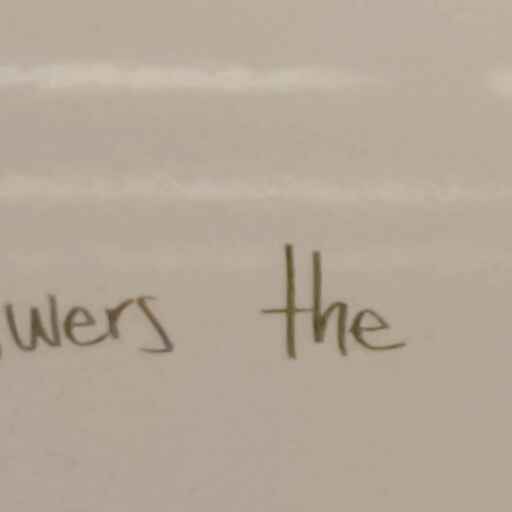 wers the